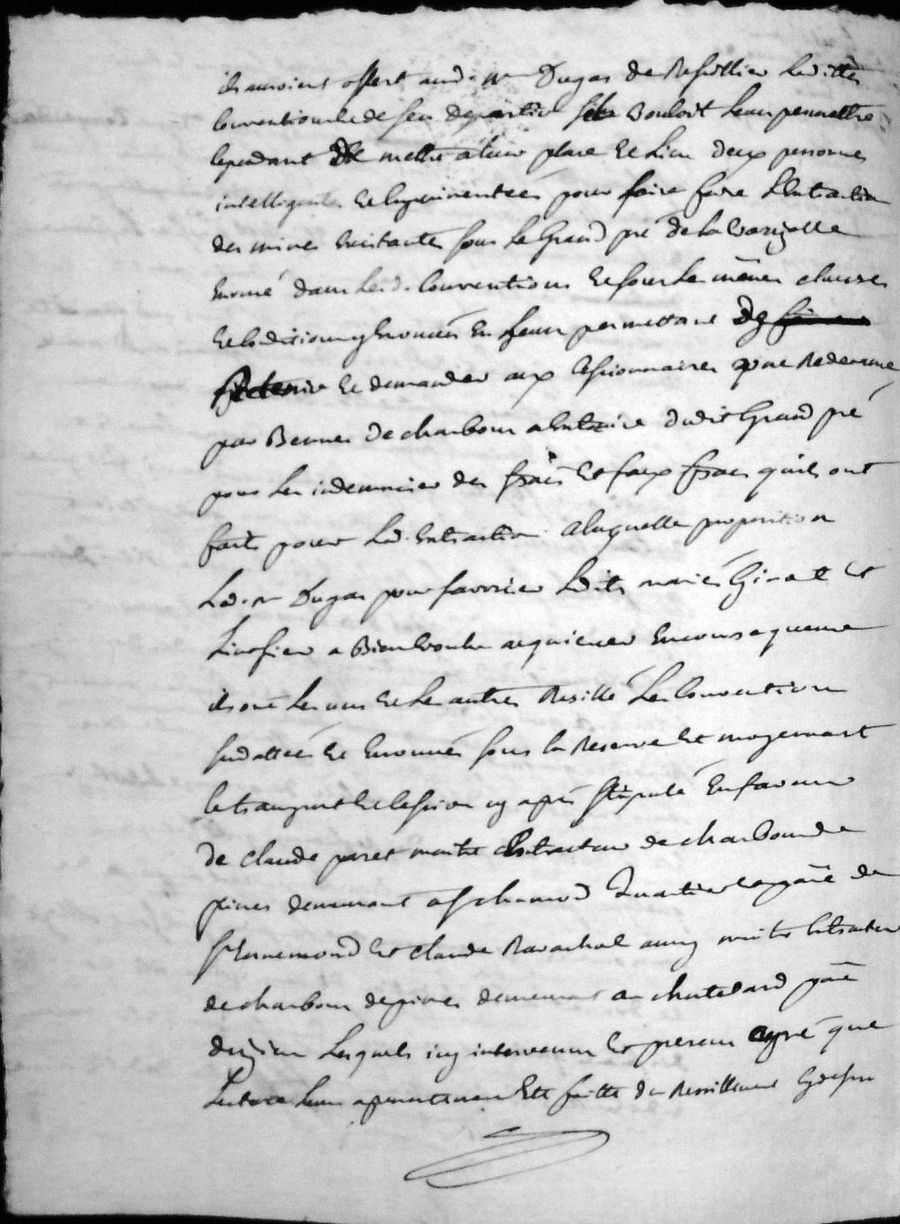 ils auroient offert aud. sr Dugas de Resillier lesdittes
conventions de s'en departir s'il vouloit leur permettre
cependant de mettre a leur place et lieu deux personnes
intelligentes et experimentées pour faire faire l'extraction
des mines existantes sous le grand pré de la Varizelle
enoncé dans lesd. conventions et sous les mêmes clauses
et conditions y enoncées en leur permettant de
retenir et demander aux cessionnaires une redevance
par Bennes de charbon a extraire dudit grand pré
pour les indemniser des frais et faux frais qu'ils ont
faits pour lad. extraction a laquelle proposition
led. sr Dugas pour favoriser lesdits mariés et
a Bien voulu acquiescer en consequence
ils ont les uns et les autres Resillé les conventions
susdattées et enoncées sous la Reserve et moyennant
le transport et cession cy après stipulé en faveur
de Claude paret maitre extracteur de charbon de
pierres demeurant a st chamond quartier et pãre de
st Ennemond et Claude Ravachol aussy maitre extracteur
de charbon de pierres demeurant au chatelard pãre
d'izieu lesquels icy intervenus et presens après que
lecture leur a presentement été faitte du Resillement cy dessus